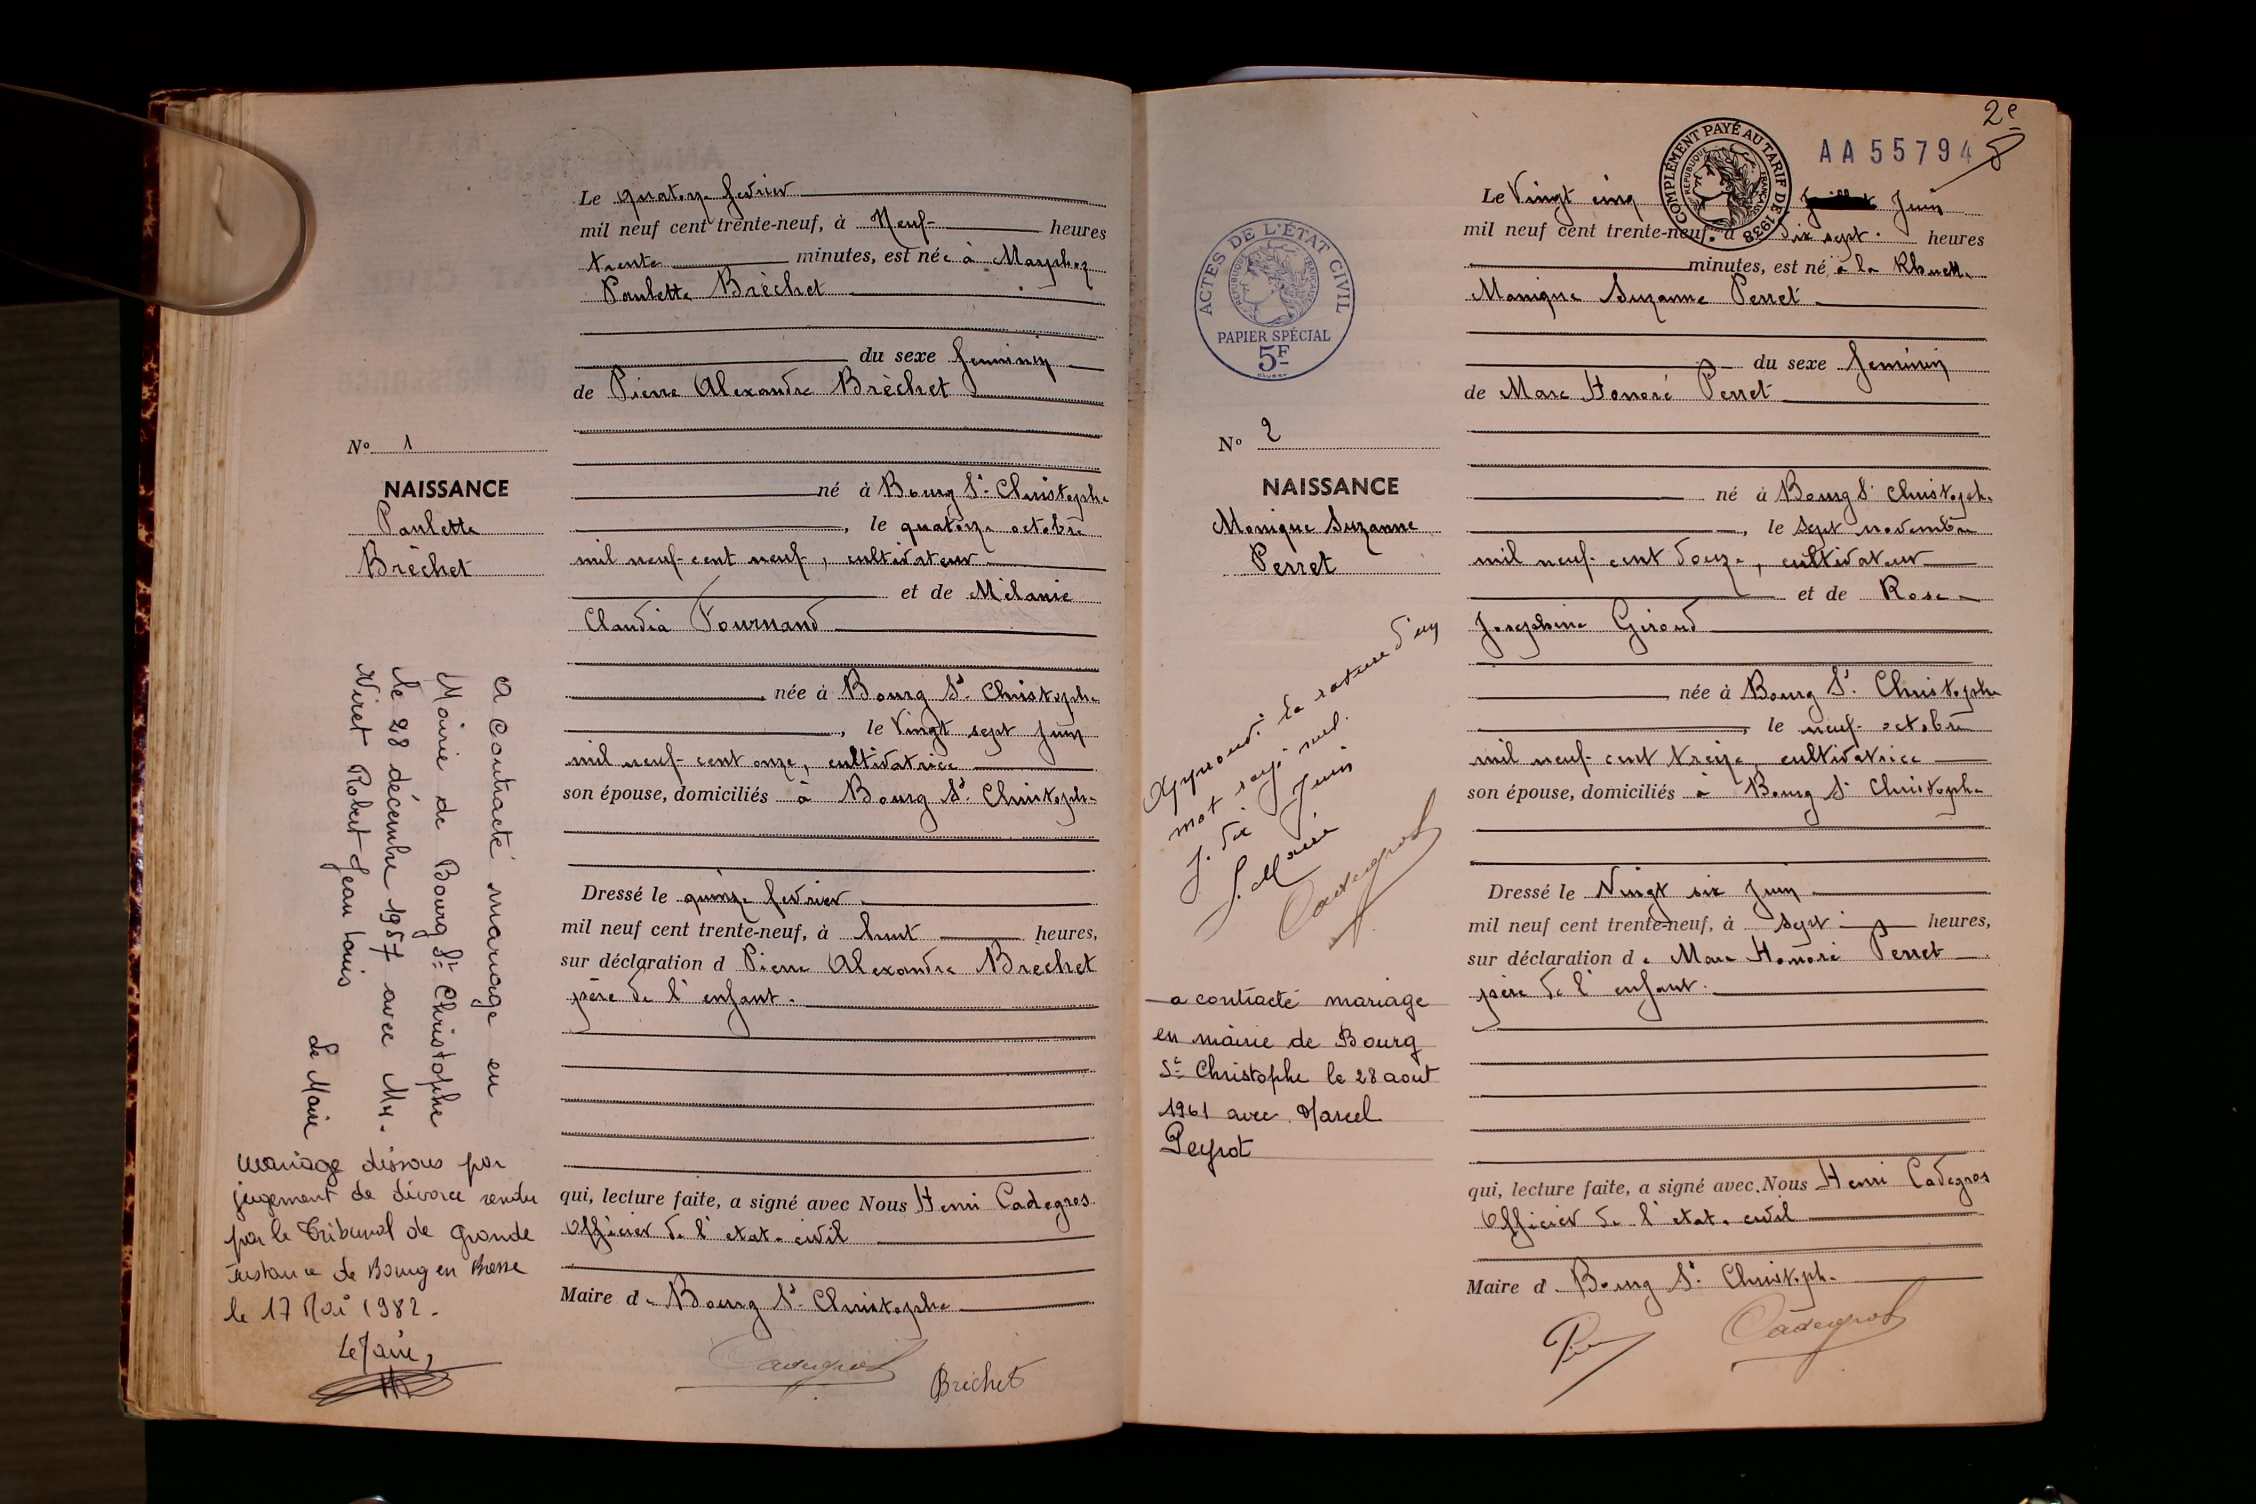 Le quatorze fevrier
mil neuf cent trente-neuf, à Neuf heures
trente minutes, est née à Marphoz
Paulette Brèchet
du sexe feminin
de Pierre Alexandre Brèchet
né à Bourg St. Christophe
, le quatorze octobre
mil neuf cent neuf, cultivateur
et de Mélanie
Claudia Fournand
née à Bourg St. Christophe
, le Vingt sept Juin
mil neuf cent onze, cultivatrice
son épouse, domiciliés à Bourg St. Christophe
Dressé le quinze fevrier
mil neuf cent trente-neuf, à huit heures,
sur déclaration d Pierre Alexandre Brechet
père de l'enfant.
qui, lecture faite, a signé avec Nous Henri Cadegros
Officier de l'etat. civil
Maire de Bourg St. Christophe
Cadegros
Brèchet
No 1
NAISSANCE
Paulette
Brèchet
a contracté mariage en
Mairie de Bourg St. Christophe
le 28 décembre 1957 avec Mr.
Niret Robert Jean Louis
Le Maire
Mariage dissous par
jugement de divorce rendu
par le Tribunal de Grande
instance de Bourg en Bresse
le 17 Mai 1982.
Le Maire,
2e
AA55794
COMPLÉMENT PAYÉ AU TARIF DE 1938
RÉPUBLIQUE FRANÇAISE
Le Vingt cinq Juin
mil neuf cent trente-neuf, à dix sept heures
minutes, est né à la
Monique Suzanne Perret
du sexe feminin
de Marc Honoré Perret
né à Bourg St Christoph.
, le sept novembre
mil neuf cent douze, cultivateur
et de Rose
Josephine Giroud
née à Bourg St. Christophe
, le neuf octobre
mil neuf cent treize, cultivatrice
son épouse, domiciliés à Bourg St Christophe
Dressé le Vingt six Juin
mil neuf cent trente-neuf, à sept heures,
sur déclaration de Marc Honoré Perret
père de l'enfant.
qui, lecture faite, a signé avec Nous Henri Cadegros
Officier de l'etat. civil
Maire d. Bourg St. Christoph.
Cadegros
ACTES DE L'ÉTAT CIVIL
RÉPUBLIQUE FRANÇAISE
PAPIER SPÉCIAL
5F
No 2
NAISSANCE
Monique Suzanne
Perret
Approuvé la rature d'un
mot rayé nul.
Juin
Cadegros
a contracté mariage
en mairie de Bourg
St. Christophe le 28 aout
1961 avec Marcel
Peyrot